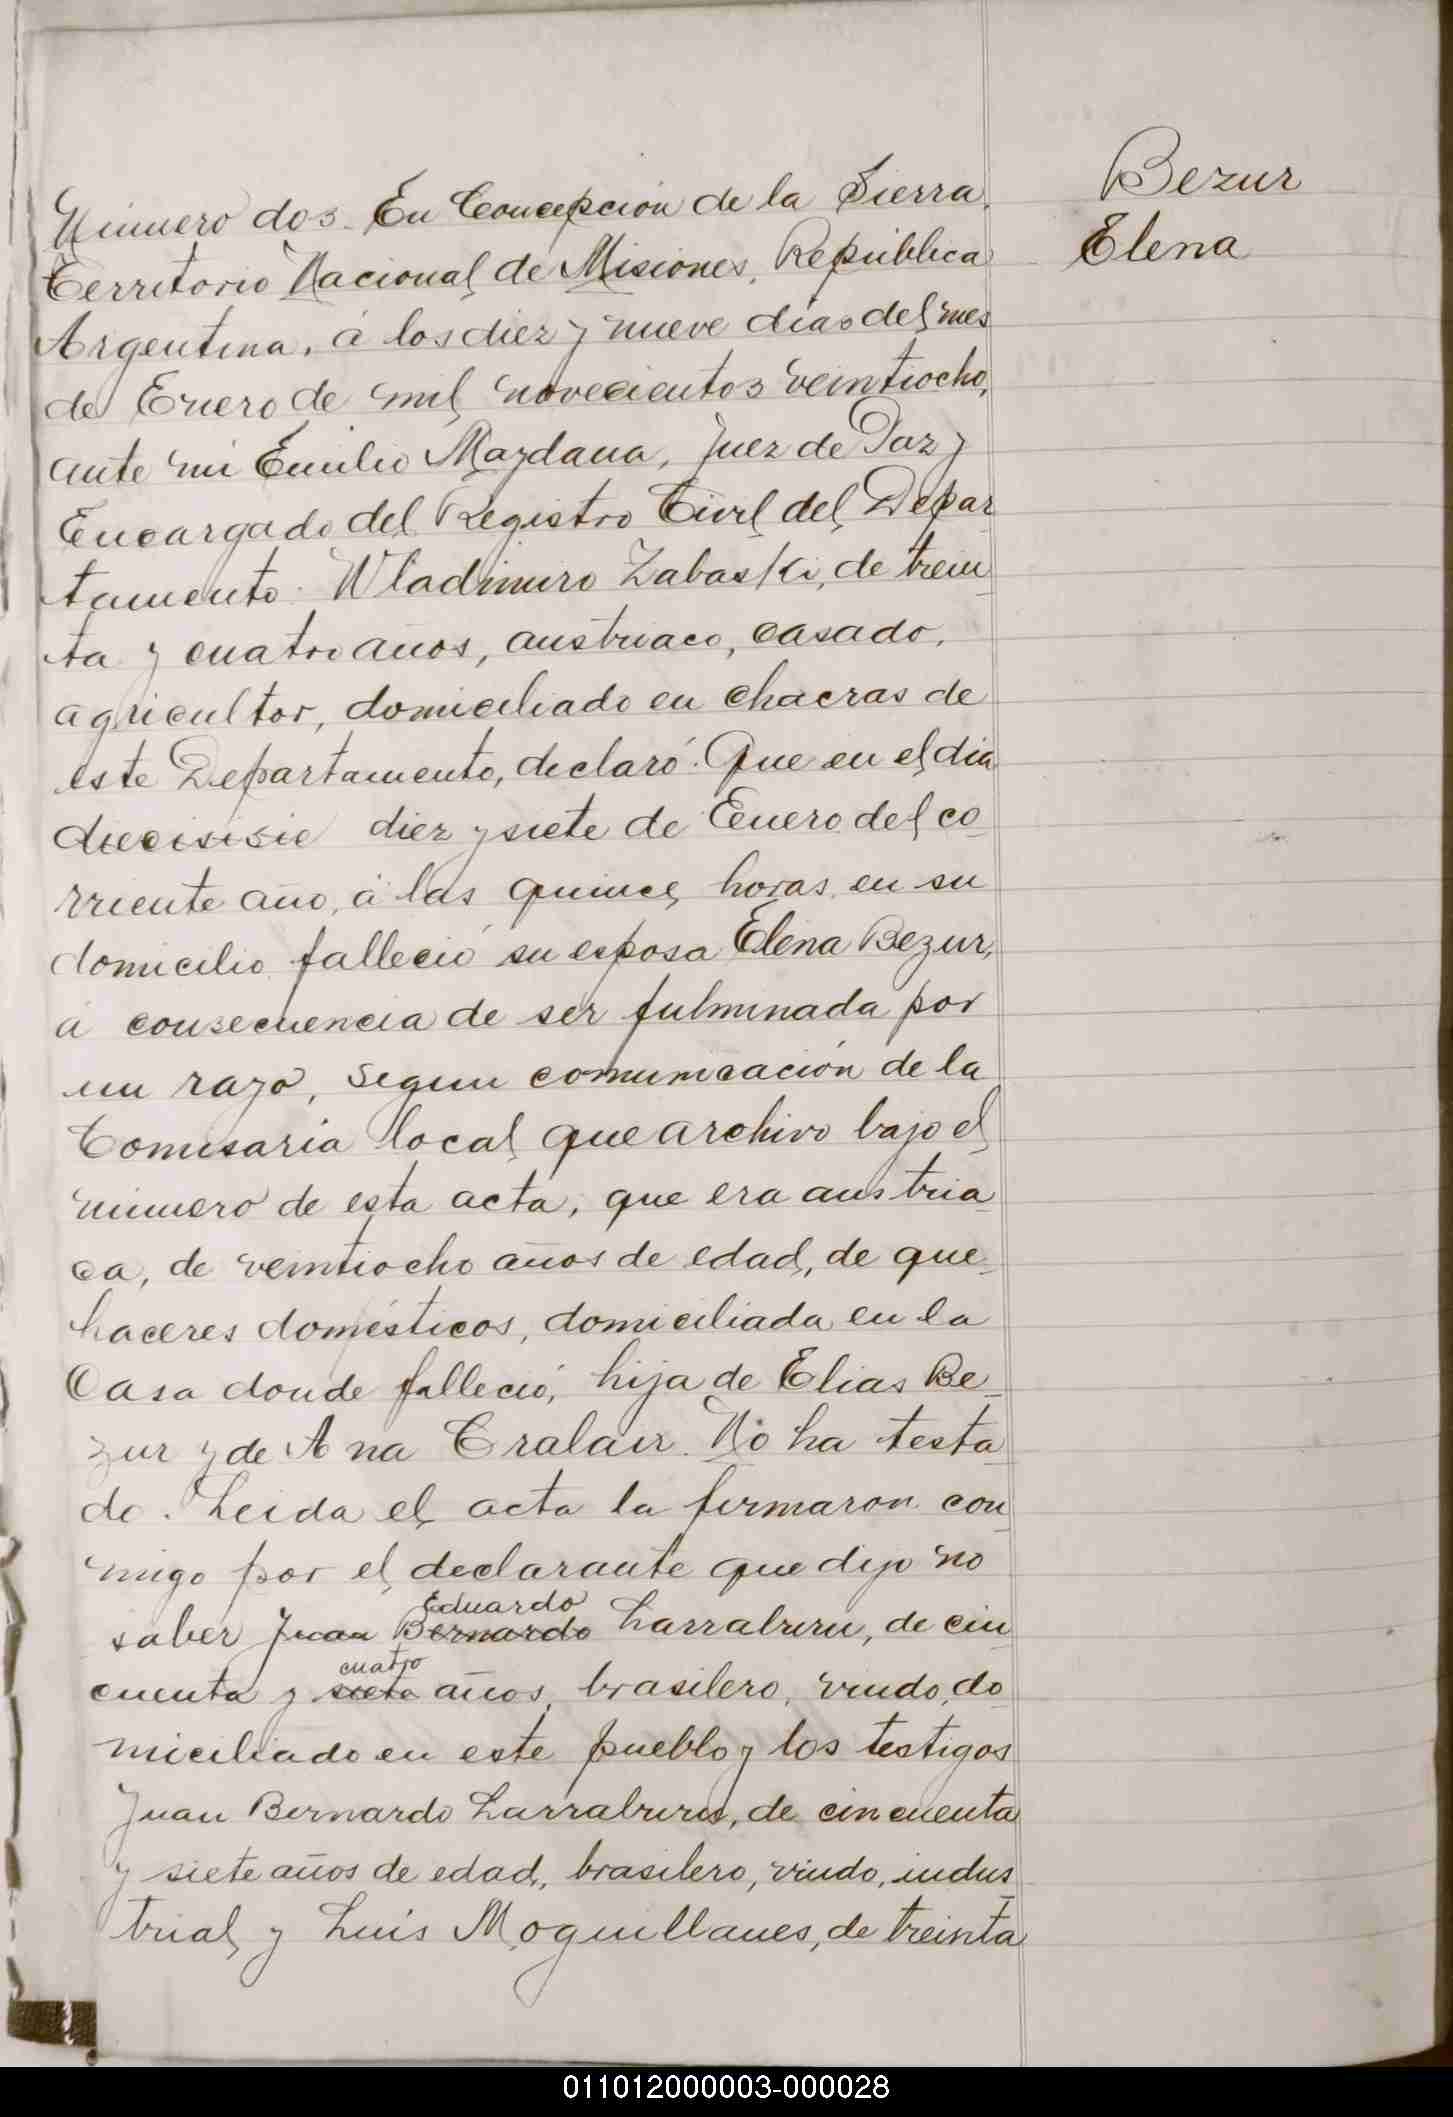 Bezur
Elena
Número dos. En Concepción de la Sierra,
Territorio Nacional de Misiones, República
Argentina, á los diez y nueve días del mes
de Enero de mil novecientos veintiocho,
ante mi Emilio Maydana, Juez de Paz y
Encargado del Registro Civil del Depar
tamento: Wladimiro Zabaski, de trein_
ta y cuatro años, austriaco, casado,
agricultor, domiciliado en chacras de
este Departamento, declaró: Que en el dia
diecisisie diez y siete de Enero del co_
rriente año, á las quince horas, en su
domicilio falleció su esposa Elena Bezur,
á consecuencia de ser fulminada por
un rayo, segun comunicación de la
Comisaria local que archivo bajo el
número de esta acta, que era austria_
ca, de veintiocho años de edad, de que_
haceres domésticos, domiciliada en la
casa donde falleció, hija de Elias Be_
zur y de Ana Cralair. No ha testa_
do. Leida el acta la firmaron con_
migo por el declarante que dijo no
saber Juan Bernardo Eduardo Larraburu, de cin
cuenta y siete cuatro años, brasilero, viudo, do_
miciliado en este pueblo y los testigos
Juan Bernardo Larraburu, de cincuenta
y siete años de edad, brasilero, viudo, indus_
trial y Luis Moguillanes, de treinta
011012000003-000028